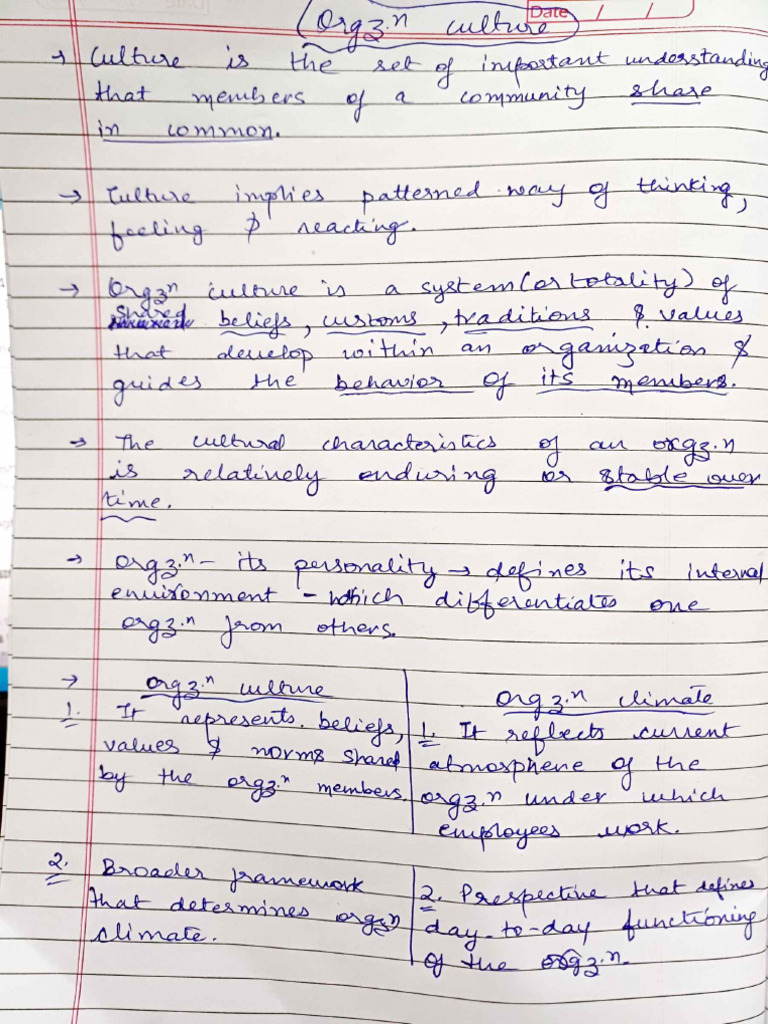 Orgz.n culture
Date / /
→ Culture is the set of important understanding
that members of a community share
in common.
→ Culture implies patterned way of thinking,
feeling & reacting.
→ Orgzn culture is a system (or totality) of
shared beliefs, customs, traditions & values
that develop within an organization &
guides the behavior of its members.
→ The cultural characteristics of an orgz.n
is relatively enduring or stable over
time.
→ Orgz.n - its personality → defines its internal
environment - which differentiates one
orgz.n from others.
→ Orgz.n culture
1. It represents beliefs,
values & norms shared
by the orgz.n members.
Orgz.n climate
1. It reflects current
atmosphene of the
orgz.n under which
employees work.
2. Broader framework
that determines orgzn
climate.
2. Prespective that defines
day-to-day functioning
of the orgz.n.